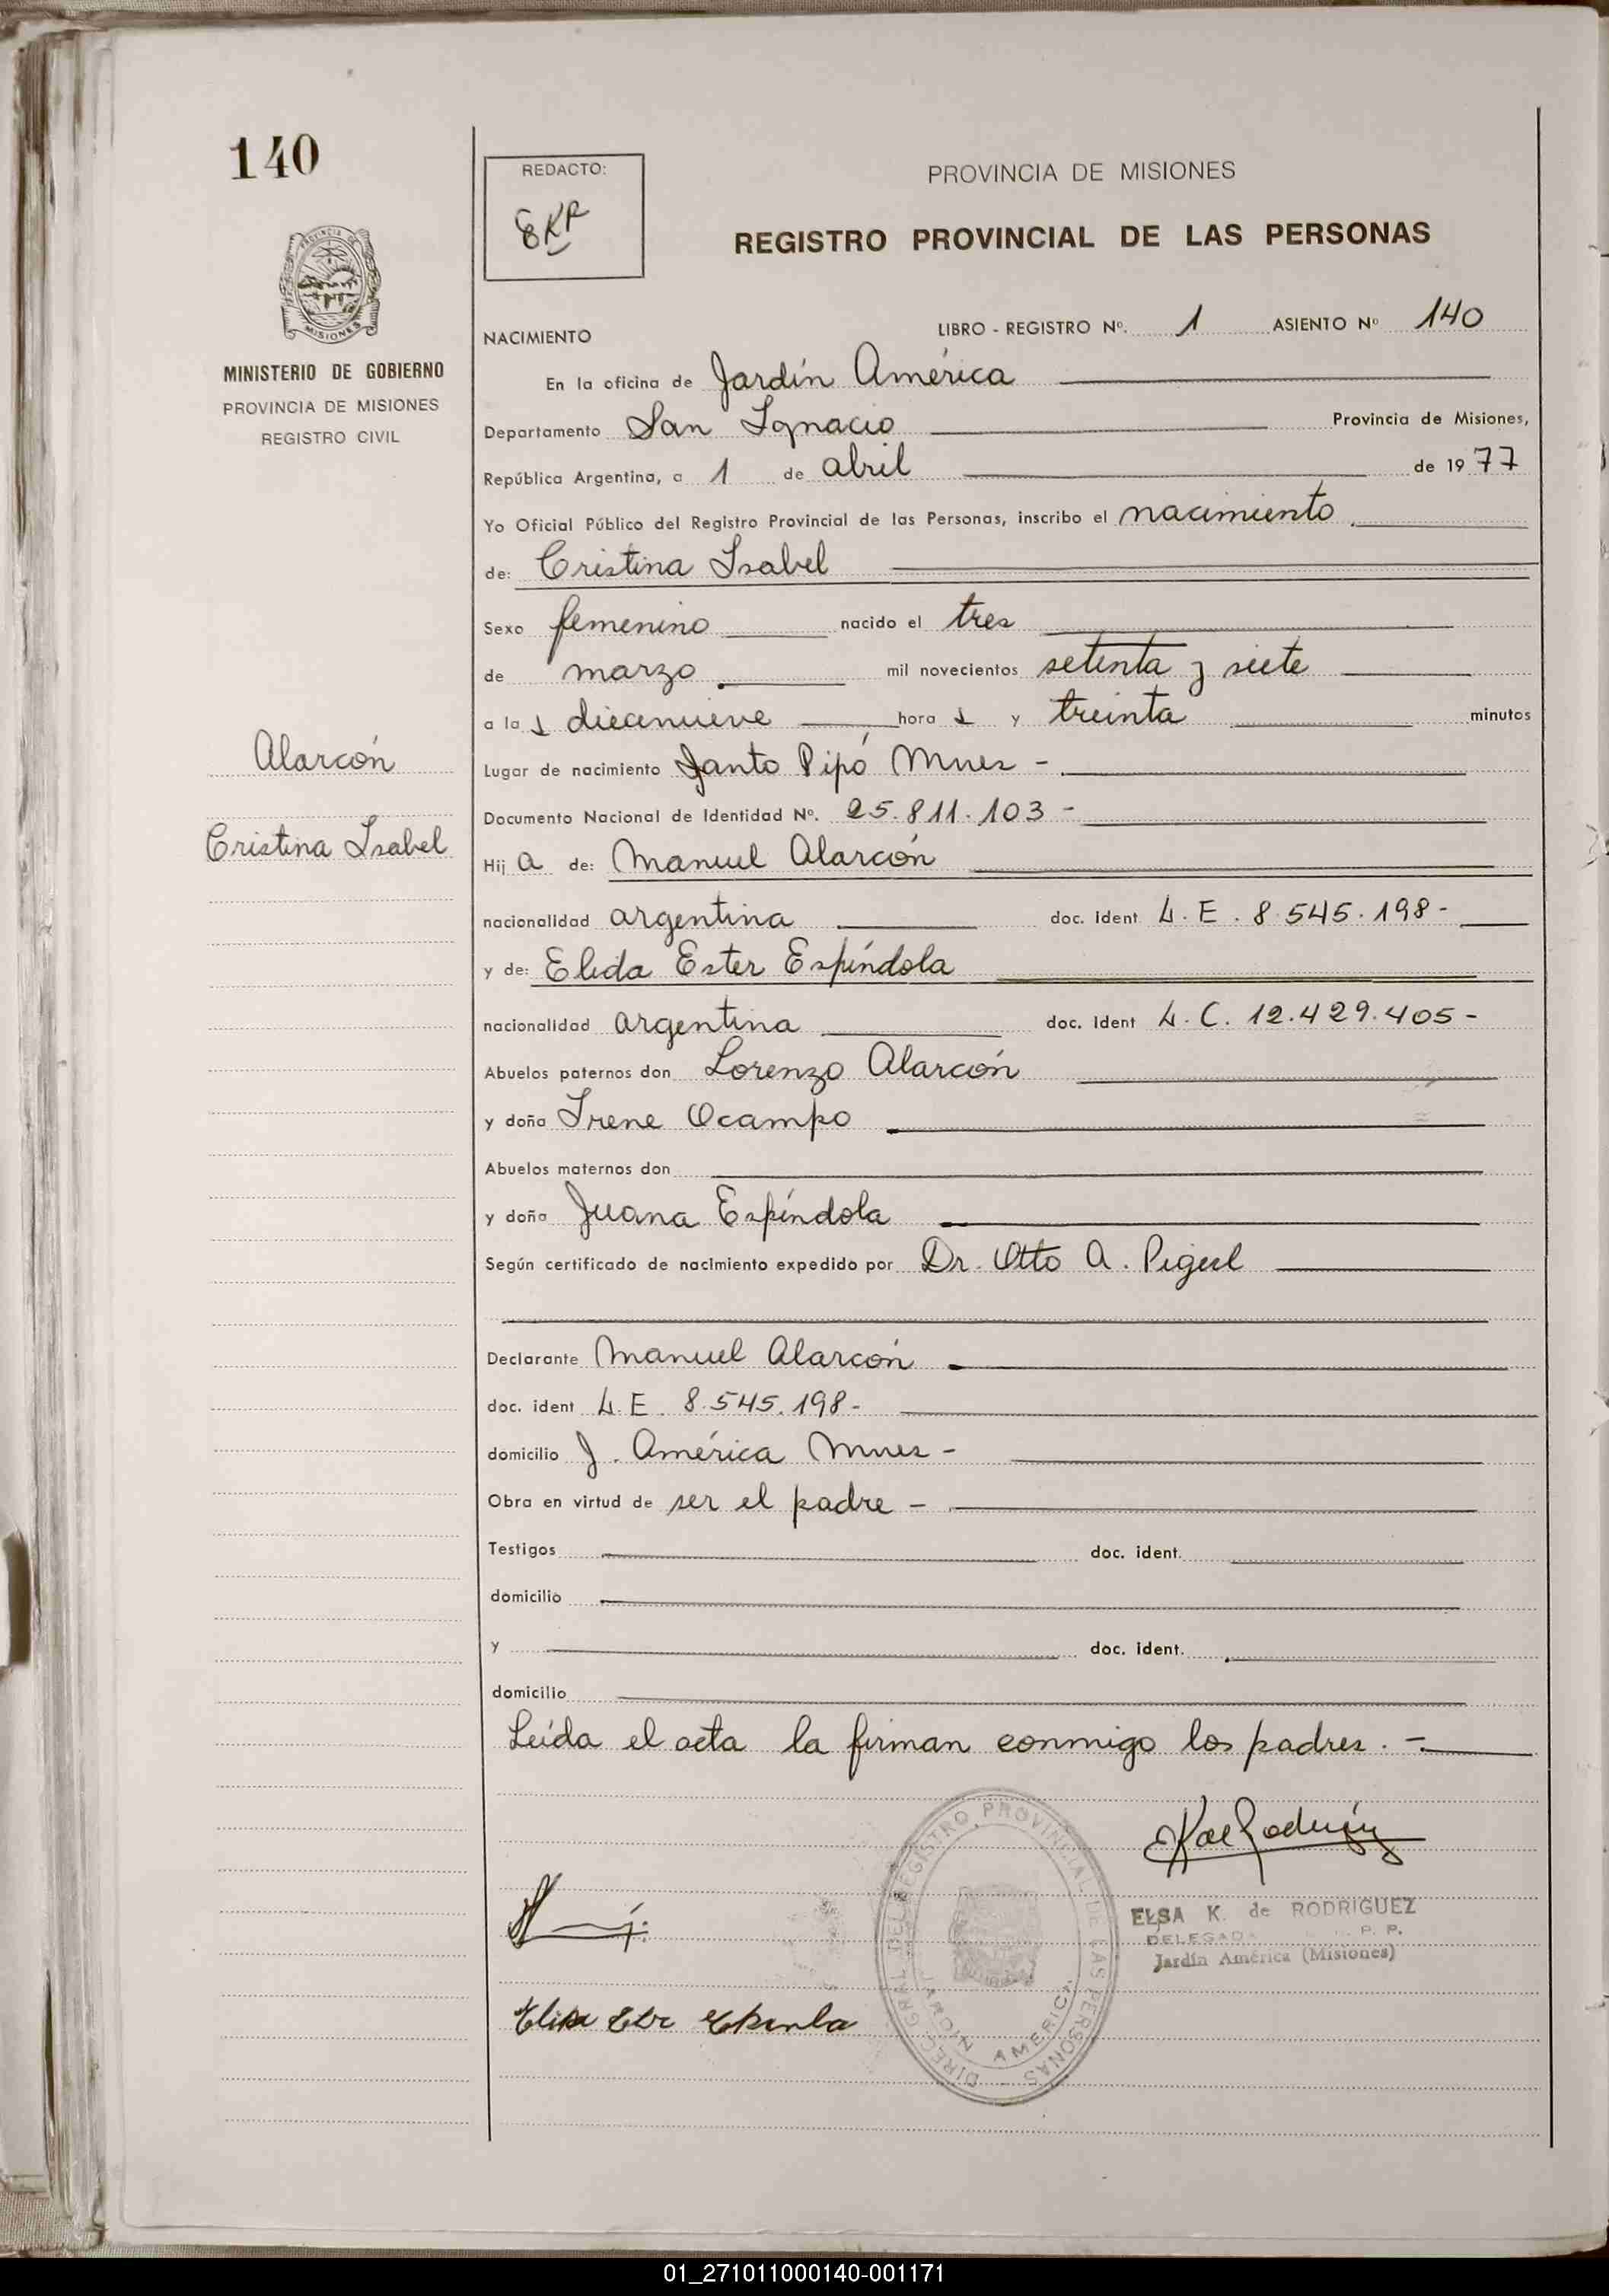 140
REDACTO:
EKR
PROVINCIA DE MISIONES
REGISTRO PROVINCIAL DE LAS PERSONAS
MISIONES
MINISTERIO DE GOBIERNO
PROVINCIA DE MISIONES
REGISTRO CIVIL
NACIMIENTO LIBRO - REGISTRO Nº. 1 ASIENTO Nº 140
En la oficina de Jardín América
Departamento San Ignacio Provincia de Misiones,
República Argentina, a 1 de abril de 1977
Yo Oficial Público del Registro Provincial de las Personas, inscribo el nacimiento
de: Cristina Isabel
Sexo femenino nacido el tres
de marzo mil novecientos setenta y siete
a la s diecinueve hora s y treinta minutos
Alarcón
Lugar de nacimiento Santo Pipó Mnes -
Documento Nacional de Identidad Nº. 25.811.103 -
Cristina Isabel
Hij a de: Manuel Alarcón
nacionalidad argentina doc. Ident L.E. 8.545.198 -
y de: Elida Ester Espíndola
nacionalidad argentina doc. Ident L.C. 12.429.405 -
Abuelos paternos don Lorenzo Alarcón
y doña Irene Ocampo
Abuelos maternos don
y doña Juana Espíndola
Según certificado de nacimiento expedido por Dr. Otto A.
Declarante Manuel Alarcón
doc. ident L.E. 8.545.198 -
domicilio J. América Mnes -
Obra en virtud de ser el padre -
Testigos doc. ident.
domicilio
y doc. ident.
domicilio
Leída el acta la firman conmigo los padres. -
DIREC. GRAL. DEL REGISTRO PROVINCIAL DE LAS PERSONAS
JARDIN AMERICA
ELSA K. de RODRIGUEZ
DELEGADA P. P.
Jardín América (Misiones)
01_271011000140-001171